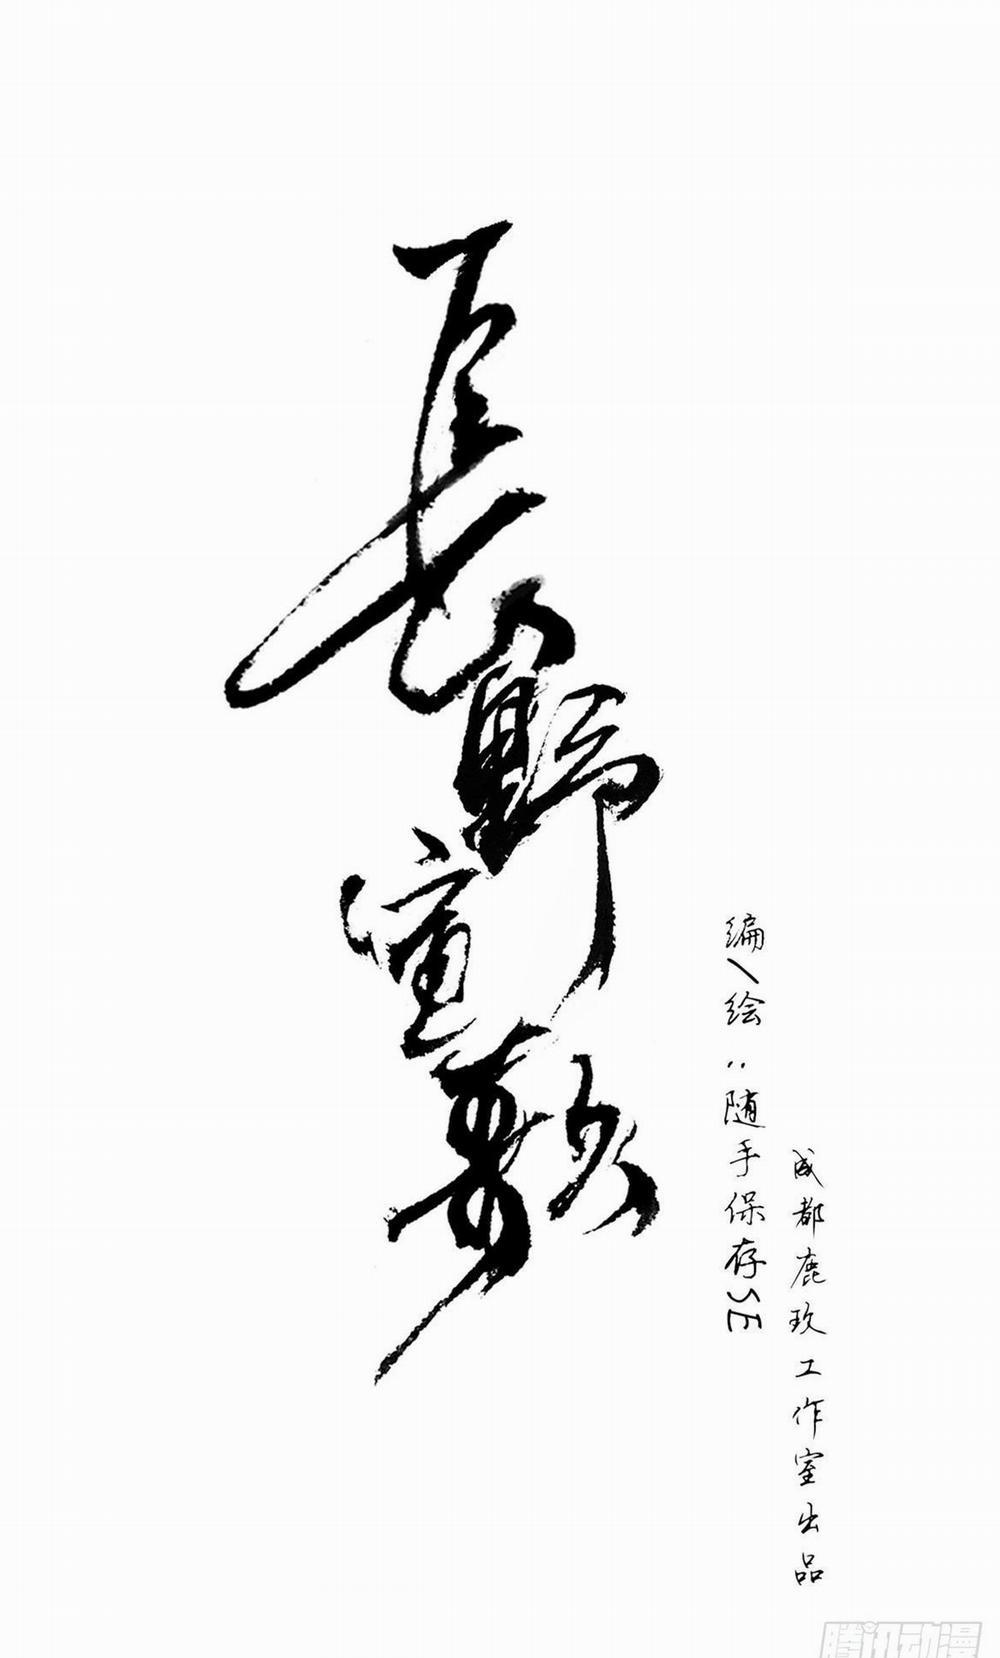 長野宣教
成都鹿玖工作室出品
编/绘:随手保存SE
腾讯动漫